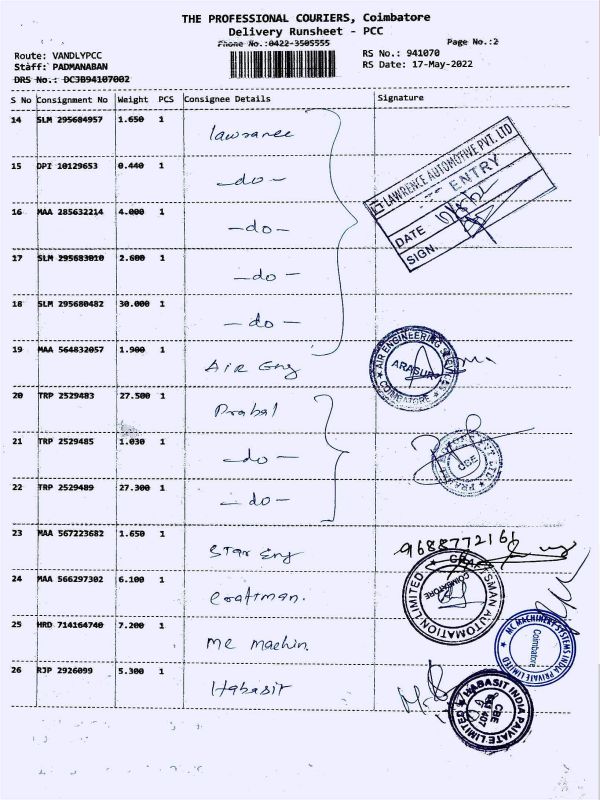 THE PROFESSIONAL COURIERS, Coimbatore
Delivery Runsheet - PCC
Phone No.:0422-3505555
Page No.:2
Route: VANDLYPCC
RS No.: 941070
Staff: PADMANABAN
RS Date: 17-May-2022
DRS No.: DCJB94107002
S No Consignment No Weight PCS Consignee Details Signature
14 SLM 295684957 1.650 1 lawrance
15 DPI 10129653 0.440 1 -do-
16 MAA 285632214 4.000 1 -do-
17 SLM 295683010 2.600 1 -do-
18 SLM 295680482 30.000 1 -do-
LAWRENCE AUTOMOTIVE PVT. LTD
ENTRY
DATE
SIGN.
19 MAA 564832057 1.900 1 AIR Eng
AIR ENGINEERING SERVICES
ARASUR
COIMBATORE
20 TRP 2529483 27.500 1 Prabal
21 TRP 2529485 1.030 1 -do-
22 TRP 2529489 27.300 1 -do-
CBE
23 MAA 567223682 1.650 1 Star Eng
9688772161
24 MAA 566297302 6.100 1 craftman.
CRAFTSMAN AUTOMATION LIMITED
COIMBATORE
25 HRD 714164740 7.200 1 mc machin.
MC MACHINERY SYSTEMS INDIA PRIVATE LIMITED
Coimbatore
26 RJP 2926099 5.300 1 Habasit
HABASIT INDIA PRIVATE LIMITED
CBE
641 407